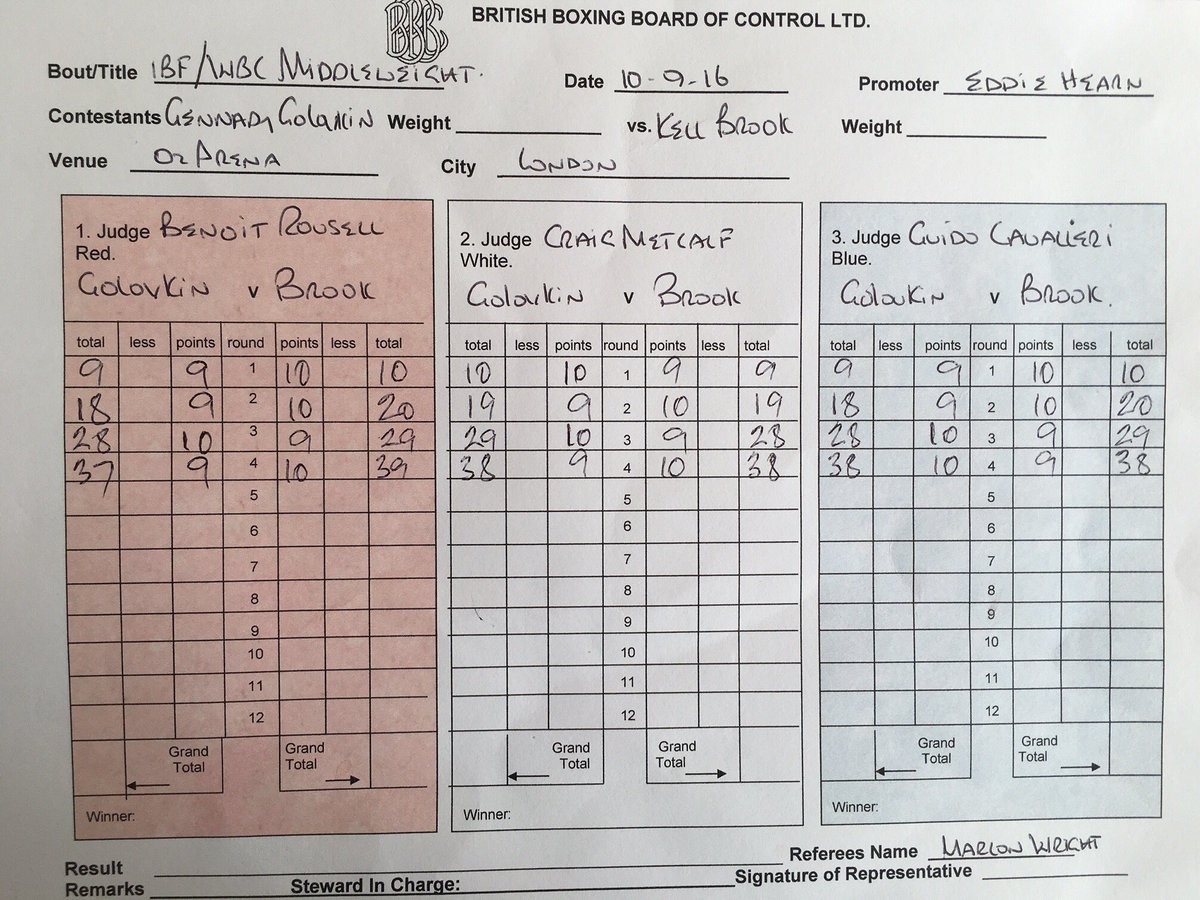 BBBC
BRITISH BOXING BOARD OF CONTROL LTD.
Bout/Title IBF/WBC MIDDLEWEIGHT. Date 10-9-16 Promoter EDDIE HEARN
Contestants GENNADY GOLOVKIN Weight vs. KELL BROOK Weight
Venue O2 ARENA City LONDON
1. Judge BENOIT ROUSELL
Red.
GOLOVKIN v BROOK
total less points round points less total
9 9 1 10 10
18 9 2 10 20
28 10 3 9 29
37 9 4 10 39
5
6
7
8
9
10
11
12
Grand Total Grand Total
Winner:
2. Judge CRAIG METCALF
White.
GOLOVKIN v BROOK
total less points round points less total
10 10 1 9 9
19 9 2 10 19
29 10 3 9 28
38 9 4 10 38
5
6
7
8
9
10
11
12
Grand Total Grand Total
Winner:
3. Judge GUIDO CAVALIERI
Blue.
GOLOVKIN v BROOK.
total less points round points less total
9 9 1 10 10
18 9 2 10 20
28 10 3 9 29
38 10 4 9 38
5
6
7
8
9
10
11
12
Grand Total Grand Total
Winner:
Result Referees Name MARLON WRIGHT
Remarks Steward In Charge: Signature of Representative